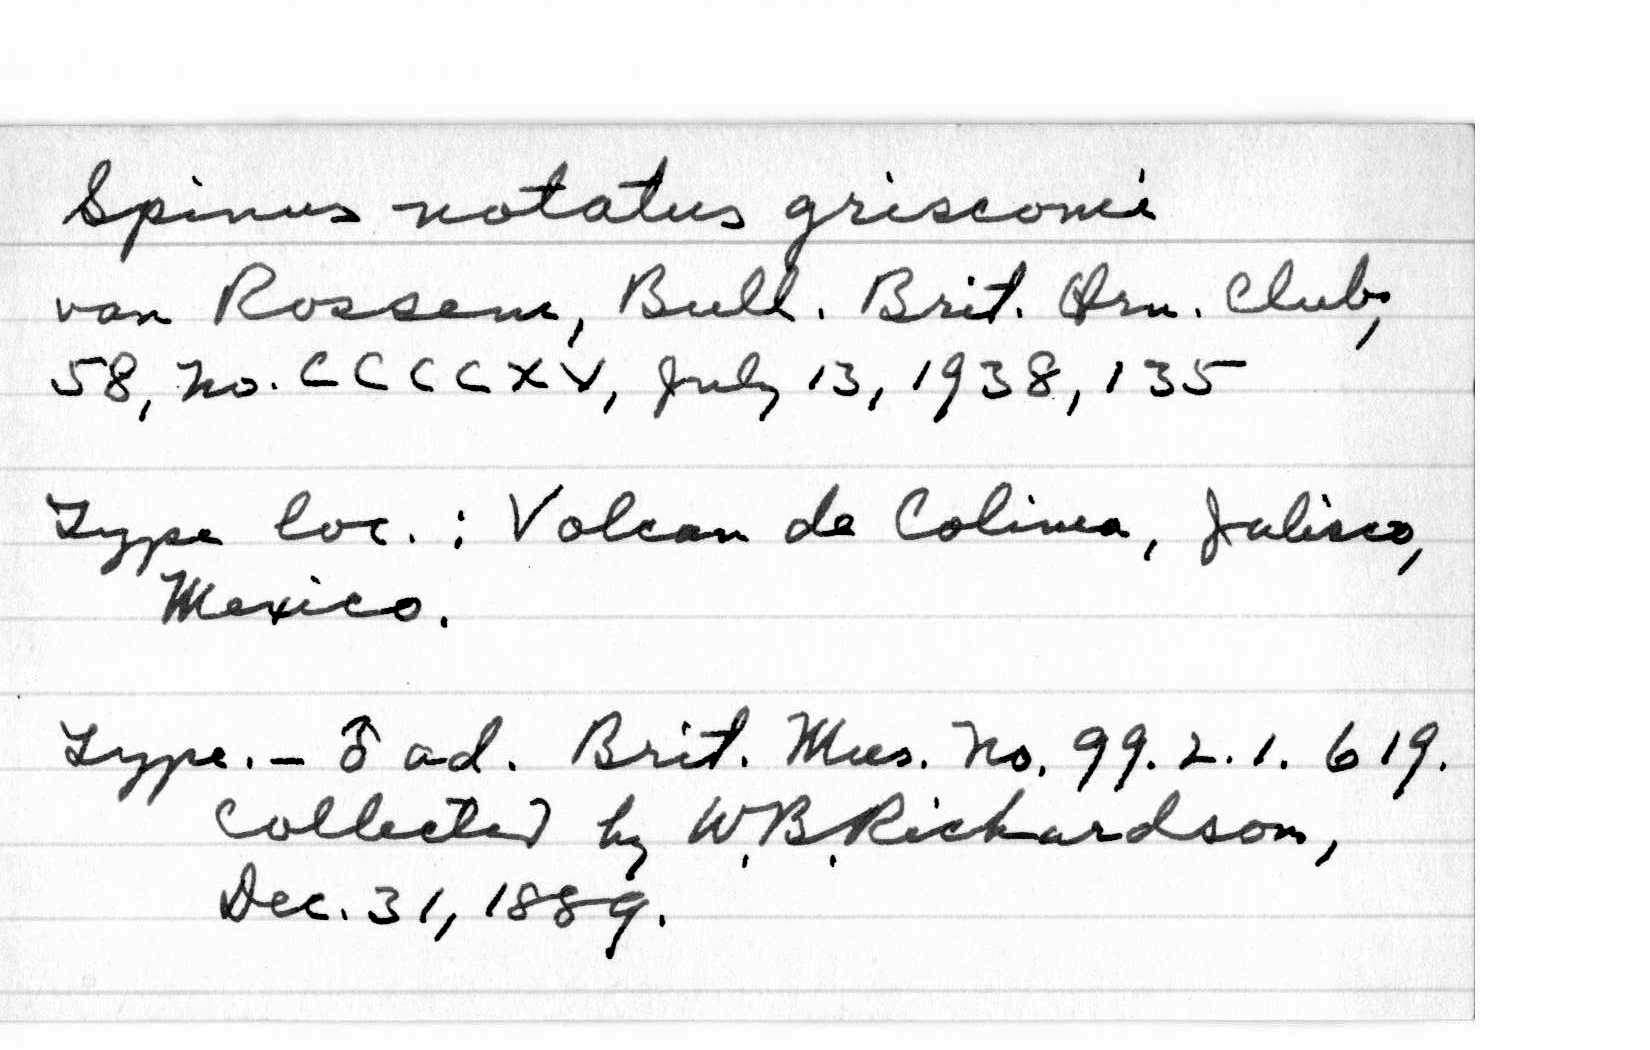 Spinus notatus griscomi
van Rossem, Bull. Brit. Orn. Club,
58, No. CCCCXV, July 13, 1938, 135
Type loc. : Volcan de Colima, Jalisco,
Mexico.
Type. — ♂ ad. Brit. Mus. No. 99. 2. 1. 619.
Collected by W.B. Richardson,
Dec. 31, 1889.